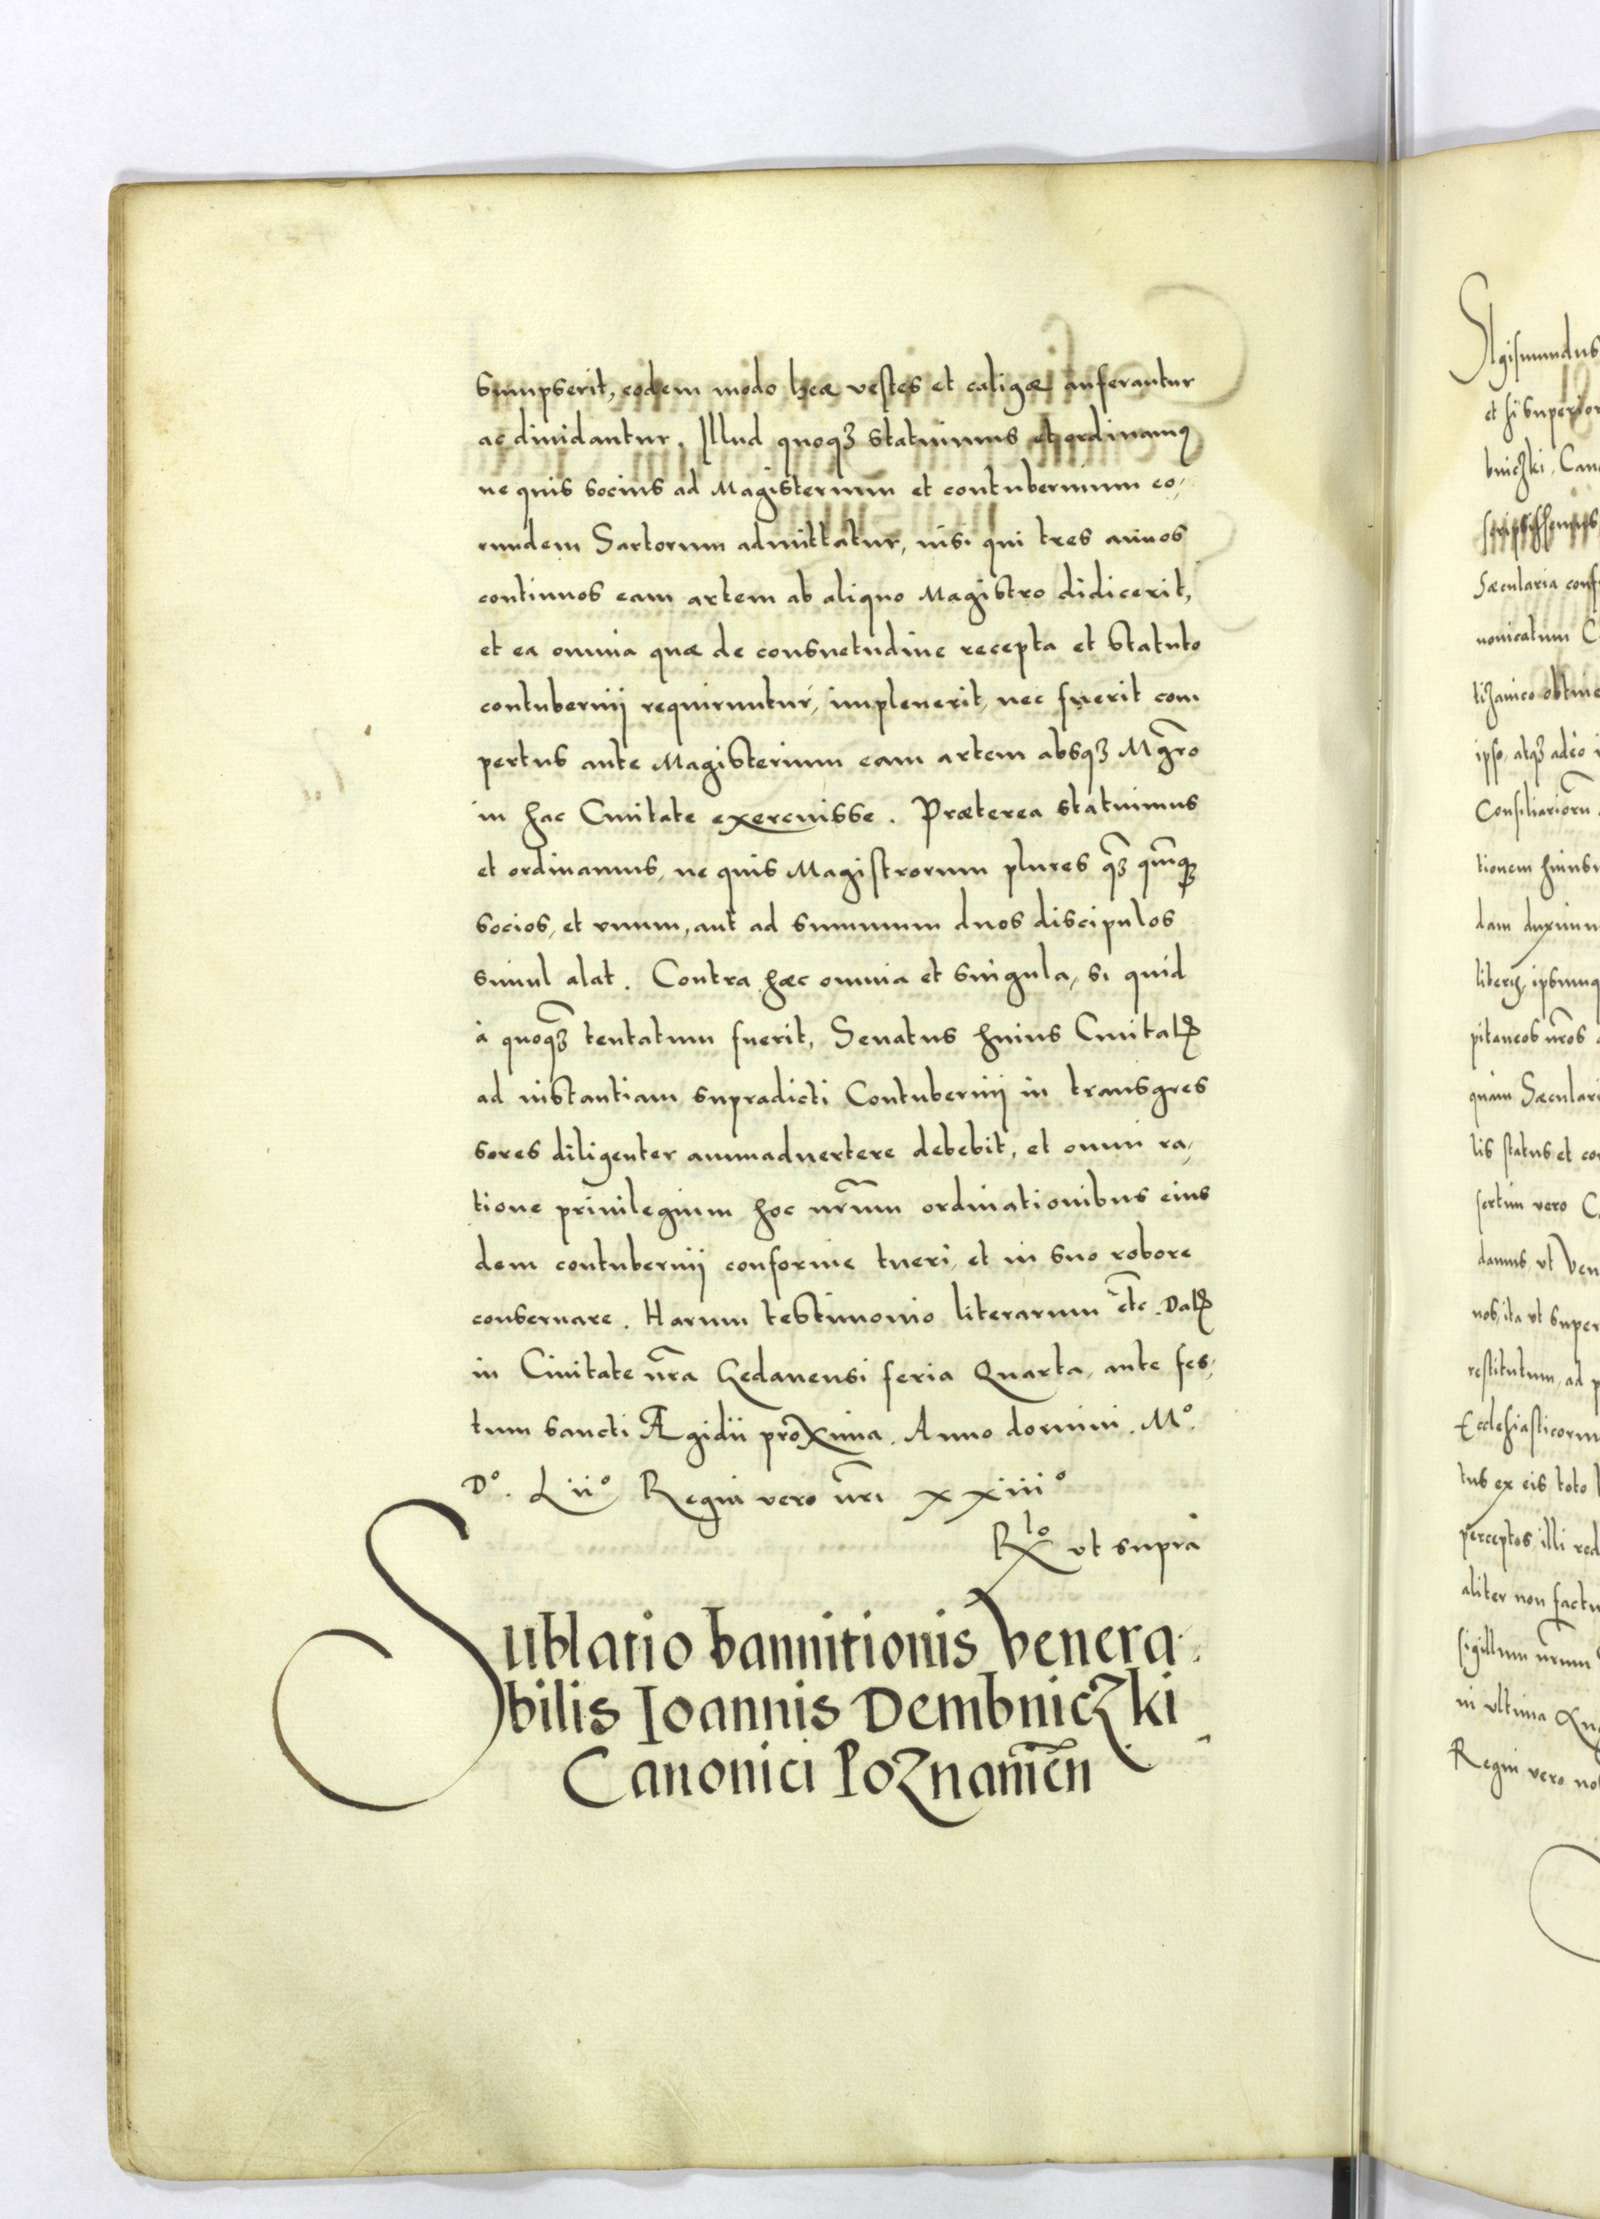 sumpserit, eodem modo hæ vestes et caligæ auferantur
ac diuidantur. Illud quoqꝫ statuimus et ordinamꝰ
ne quis socius ad Magisterium et contubernium eo,
rundem Sartorum admittatur, nisi qui tres annos
continuos eam artem ab aliquo Magistro didicerit,
et ea omnia quæ de consuetudine recepta et statuto
contubernij requiruntur, impleuerit, nec fuerit com
pertus ante Magisterium eam artem absqꝫ Mgr̃o
in hac Ciuitate exercuisse. Præterea statuimus
et ordinamus, ne quis Magistrorum plures qꝫ̃ quĩqꝫ
socios, et vnum, aut ad summum duos discipulos
simul alat. Contra hæc omnia et singula, si quid
à quoqꝫ̃ tentatum fuerit, Senatus huius Ciuitatꝭ
ad instantiam supradicti Contubernij in transgres
sores diligenter animaduertere debebit, et omni ra,
tione priuilegium hoc nr̃um ordinationibus eius
dem contubernij conforme tueri, et in suo robore
conseruare. Harum testimonio literarum etc̃. Datꝭ
in Ciuitate nr̃a Gedanensi feria Quarta, ante fes,
tum sancti Ægidii proxima. Anno domini. Mº.
Dº. Liiº Regni vero nr̃i xxiiiº
Rlº vt supra
Sublatio bannitionis Venera,
bilis Ioannis Dembniczki
Canonici Poznamẽn
Sigismundus
et hi superior
bniczki, Can
Sæcularia conf
nonicatum C
tizanico obtine
ipso, atqꝫ adeo i
Consiliariorũ
tionem huius
dam duximu
literꝭ, ipsumq
pitaneos nr̃os
quàm Sæculari
lis status et co
sertim vero C
damus, vt Ven
nob, ita vt super
restitutum, ad p
Ecclesiasticorum
tus ex eis toto
perceptos illi red
aliter non factu
sigillum nr̃um
in vltima Qua
Regni vero no